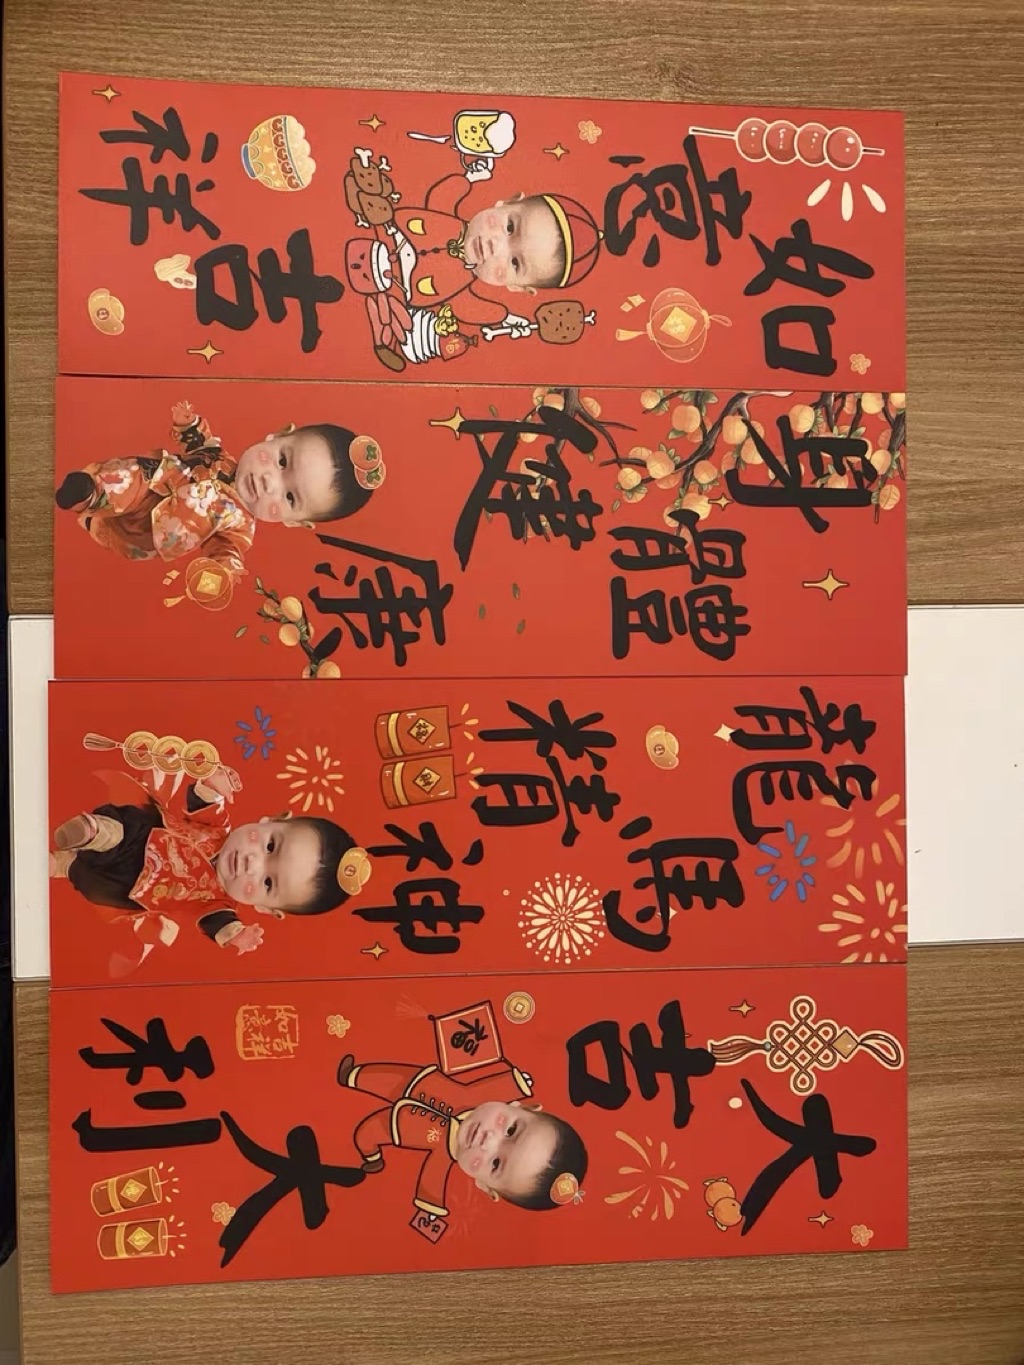 如意吉祥
身體健康
龍馬精神
大吉大利
吉祥
如意
福